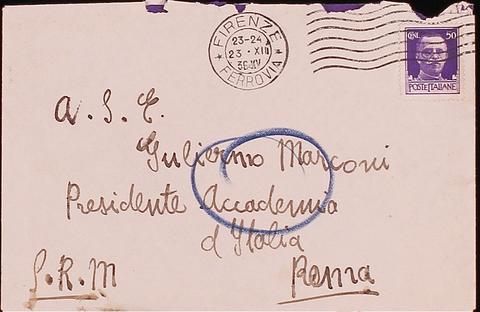 FIRENZE
23-24
23 · XII
36 XV
FERROVIA
CENT. 50
POSTE ITALIANE
A. S. E.
Gulierno Marconi
Presidente Accademia
d'Italia
S.R.M Roma